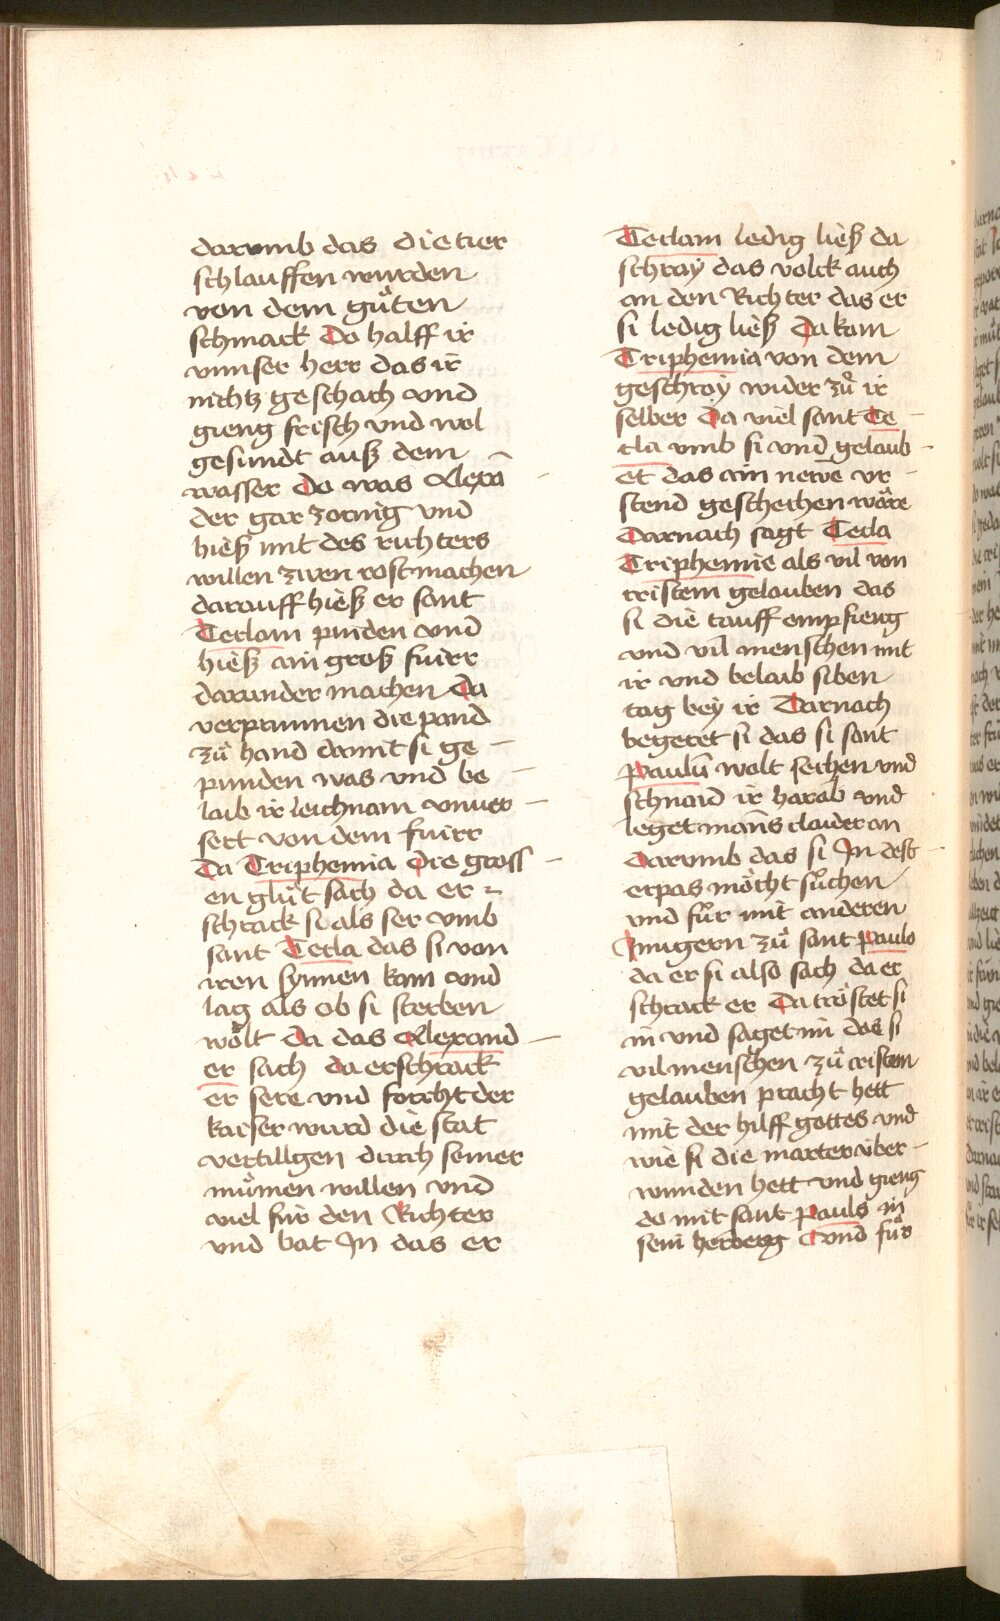 darvmb das die tier
schlauffen wurden
von dem gůten
schmack Do halff ir
vnnser herr das ir
nichtz geschach vnd
gieng frisch vnd wol
gesundt auß dem
wasser Do was Alexā
der gar zornig vnd
hieß mit des richters
willen zwen rost machen
darauff hieß er sant
Teclam pinden vnd
hieß ain groß fuirr
darunder machen Da
verprunnen die pand
zů hand damit si ge
punden was vnd be
laib ir leichnam vnuer
sert von dem fuirr
Da Triphemia die gross
en glůt sach da er
schrack si als ser vmb
sant Tecla das si von
iren synnen kam vnd
lag als ob si sterben
wôlt Da das Alexand
er sach da erschrack
er sere vnd forcht der
kaiser wurd die stat
vertillgen durch seiner
můmen willen vnd
viel für den Richter
vnd bat Jn das er
Teclam ledig ließ da
schray das volck auch
an den Richter das er
si ledig ließ Da kam
Triphemia von dem
geschray wider zů ir
selber Da viel sant Te
cla vmb si vnd gelaub
et das ain newe vr
stend geschechen wåre
Darnach sagt Tecla
Triphemie als vil von
cristem gelauben das
si die tauff empfieng
vnd vil menschen mit
ir vnd belaib siben
tag bey ir Darnach
begeret si das si sant
Paulū wolt sechen vnd
schnaid ir harab vnd
leget mans claider an
Darvmb das si Jn dest
erpas môcht sůchen
vnd fůr mit anderen
Jungern zů sant paulo
da er si also sach da er
schrack er Da trôstet si
in vnd saget im das si
vil menschen zů cristem
gelauben pracht hett
mit der hilff gottes vnd
wie si die marter über
wunden hett vnd gieng
do mit sant pauls in
sein herberg Vnd fůr